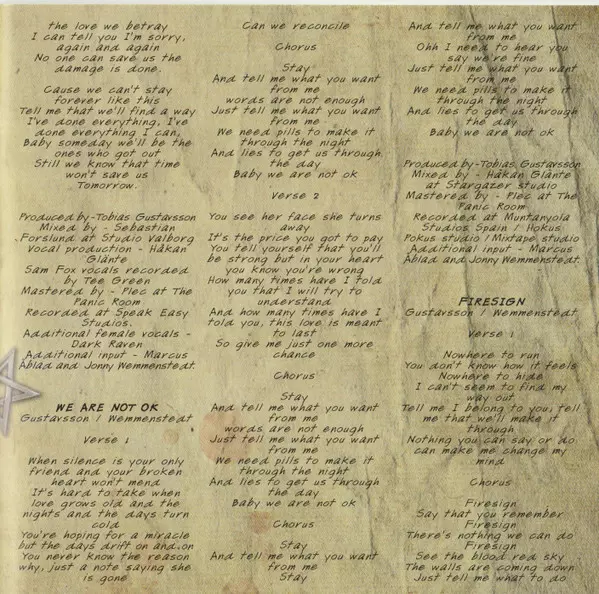 the love we betray
I can tell you I'm sorry,
again and again
No one can save us the
damage is done.
Cause we can't stay
forever like this
Tell me that we'll find a way
I've done everything, I've
done everything I can,
Baby someday we'll be the
ones who got out
Still we know that time
won't save us
Tomorrow.
Produced by-Tobias Gustavsson
Mixed by - Sebastian
Forslund at Studio Valborg
Vocal production - Håkan
Glänte
Sam Fox vocals recorded
by Tee Green
Mastered by - Plec at The
Panic Room
Recorded at Speak Easy
Studios.
Additional female vocals -
Dark Raven
Additional input - Marcus
Äblad and Jonny Wemmenstedt.
WE ARE NOT OK
Gustavsson / Wemmenstedt
Verse 1
When silence is your only
friend and your broken
heart won't mend
It's hard to take when
love grows old and the
nights and the days turn
cold
You're hoping for a miracle
but the days drift on and on
You never know the reason
why, just a note saying she
is gone
Can we reconcile
Chorus
Stay
And tell me what you want
from me
words are not enough
Just tell me what you want
from me
We need pills to make it
through the night
And lies to get us through
the day
Baby we are not ok
Verse 2
You see her face she turns
away
It's the price you got to pay
You tell yourself that you'll
be strong but in your heart
you know you're wrong
How many times have I told
you that I will try to
understand
And how many times have I
told you, this love is meant
to last
So give me just one more
chance
Chorus
Stay
And tell me what you want
from me
words are not enough
Just tell me what you want
from me
We need pills to make it
through the night
And lies to get us through
the day
Baby we are not ok
Chorus
Stay
And tell me what you want
from me
Stay
And tell me what you want
from me
Ohh I need to hear you
say we're fine
Just tell me what you want
from me
We need pills to make it
through the night
And lies to get us through
the day
Baby we are not ok
Produced by-Tobias Gustavsson
Mixed by - Håkan Glänte
at Stargazer studio
Mastered by - Plec at The
Panic Room
Recorded at Muntanyola
Studios Spain / Hokus
Pokus studio / Mixtape studio
Additional input - Marcus
Äblad and Jonny Wemmenstedt.
FIRESIGN
Gustavsson / Wemmenstedt
Verse 1
Nowhere to run
You don't know how it feels
Nowhere to hide
I can't seem to find my
way out
Tell me I belong to you, tell
me that we'll make it
through
Nothing you can say or do
can make me change my
mind
Chorus
Firesign
Say that you remember
Firesign
There's nothing we can do
Firesign
See the blood red sky
The walls are coming down
Just tell me what to do